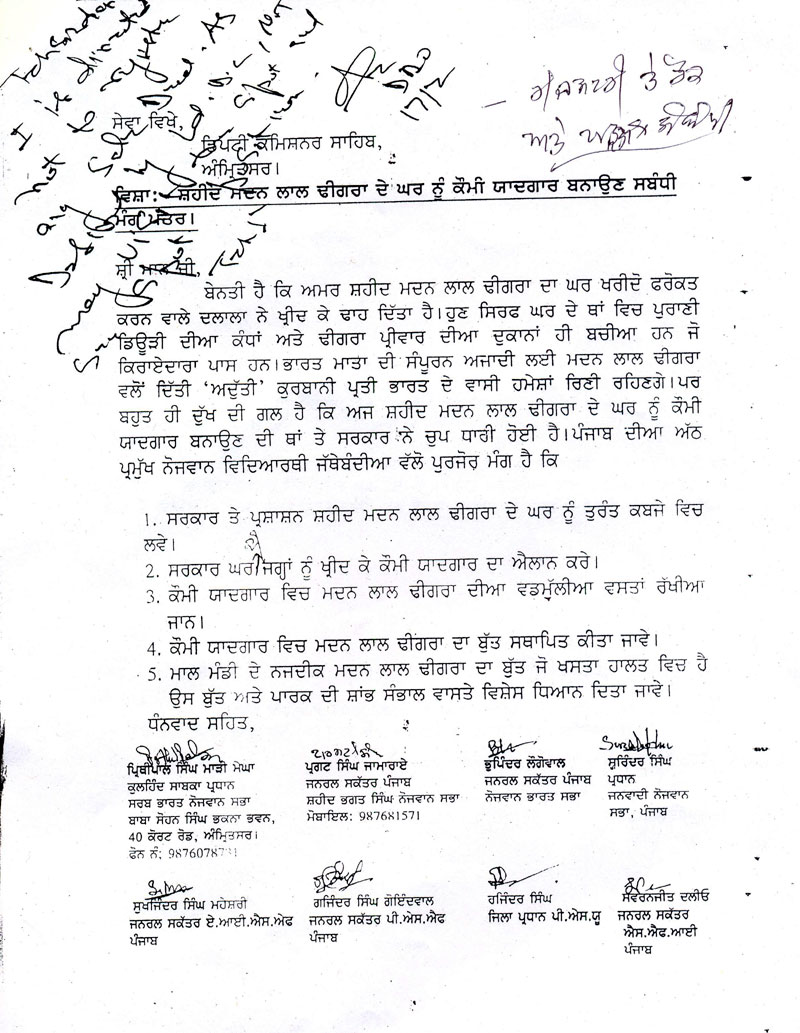 ਸੇਵਾ ਵਿਖੇ,
ਡਿਪਟੀ ਕਮਿਸ਼ਨਰ ਸਾਹਿਬ,
ਅੰਮ੍ਰਿਤਸਰ।
ਵਿਸ਼ਾ:- ਸ਼ਹੀਦ ਮਦਨ ਲਾਲ ਢੀਗਰਾ ਦੇ ਘਰ ਨੂੰ ਕੌਮੀ ਯਾਦਗਾਰ ਬਨਾਉਣ ਸਬੰਧੀ
ਮੰਗ ਪੱਤਰ।
ਸ਼੍ਰੀ ਮਾਨ ਜੀ,
ਬੇਨਤੀ ਹੈ ਕਿ ਅਮਰ ਸ਼ਹੀਦ ਮਦਨ ਲਾਲ ਢੀਗਰਾ ਦਾ ਘਰ ਖਰੀਦੋ ਫਰੋਕਤ
ਕਰਨ ਵਾਲੇ ਦਲਾਲਾ ਨੇ ਖ੍ਰੀਦ ਕੇ ਢਾਹ ਦਿੱਤਾ ਹੈ। ਹੁਣ ਸਿਰਫ ਘਰ ਦੇ ਥਾਂ ਵਿਚ ਪੁਰਾਣੀ
ਡਿਊੜੀ ਦੀਆ ਕੰਧਾਂ ਅਤੇ ਢੀਗਰਾ ਪ੍ਰੀਵਾਰ ਦੀਆ ਦੁਕਾਨਾਂ ਹੀ ਬਚੀਆ ਹਨ ਜੋ
ਕਿਰਾਏਦਾਰਾ ਪਾਸ ਹਨ। ਭਾਰਤ ਮਾਤਾ ਦੀ ਸੰਪੂਰਨ ਅਜਾਦੀ ਲਈ ਮਦਨ ਲਾਲ ਢੀਗਰਾ
ਵਲੋਂ ਦਿੱਤੀ 'ਅਦੁੱਤੀ' ਕੁਰਬਾਨੀ ਪ੍ਰਤੀ ਭਾਰਤ ਦੇ ਵਾਸੀ ਹਮੇਸ਼ਾਂ ਰਿਣੀ ਰਹਿਣਗੇ। ਪਰ
ਬਹੁਤ ਹੀ ਦੁੱਖ ਦੀ ਗਲ ਹੈ ਕਿ ਅਜ ਸ਼ਹੀਦ ਮਦਨ ਲਾਲ ਢੀਗਰਾ ਦੇ ਘਰ ਨੂੰ ਕੌਮੀ
ਯਾਦਗਾਰ ਬਨਾਉਣ ਦੀ ਥਾਂ ਤੇ ਸਰਕਾਰ ਨੇ ਚੁਪ ਧਾਰੀ ਹੋਈ ਹੈ। ਪੰਜਾਬ ਦੀਆ ਅੱਠ
ਪ੍ਰਮੁੱਖ ਨੋਜਵਾਨ ਵਿਦਿਆਰਥੀ ਜੱਥੇਬੰਦੀਆ ਵੱਲੋ ਪੁਰਜੋਰ ਮੰਗ ਹੈ ਕਿ
1. ਸਰਕਾਰ ਤੇ ਪ੍ਰਸ਼ਾਸ਼ਨ ਸ਼ਹੀਦ ਮਦਨ ਲਾਲ ਢੀਗਰਾ ਦੇ ਘਰ ਨੂੰ ਤੁਰੰਤ ਕਬਜੇ ਵਿਚ
ਲਵੇ।
2. ਸਰਕਾਰ ਘਰ ਦੀ ਜਗ੍ਹਾਂ ਨੂੰ ਖ੍ਰੀਦ ਕੇ ਕੌਮੀ ਯਾਦਗਾਰ ਦਾ ਐਲਾਨ ਕਰੇ।
3. ਕੌਮੀ ਯਾਦਗਾਰ ਵਿਚ ਮਦਨ ਲਾਲ ਢੀਗਰਾ ਦੀਆ ਵਡਮੁੱਲੀਆ ਵਸਤਾਂ ਰੱਖੀਆ
ਜਾਨ।
4. ਕੌਮੀ ਯਾਦਗਾਰ ਵਿਚ ਮਦਨ ਲਾਲ ਢੀਂਗਰਾ ਦਾ ਬੁੱਤ ਸਥਾਪਿਤ ਕੀਤਾ ਜਾਵੇ।
5. ਮਾਲ ਮੰਡੀ ਦੇ ਨਜਦੀਕ ਮਦਨ ਲਾਲ ਢੀਗਰਾ ਦਾ ਬੁੱਤ ਜੋ ਖਸਤਾ ਹਾਲਤ ਵਿਚ ਹੈ
ਉਸ ਬੁੱਤ ਅਤੇ ਪਾਰਕ ਦੀ ਸ਼ਾਂਭ ਸੰਭਾਲ ਵਾਸਤੇ ਵਿਸ਼ੇਸ ਧਿਆਨ ਦਿਤਾ ਜਾਵੇ।
ਧੰਨਵਾਦ ਸਹਿਤ,
ਪ੍ਰਿਥੀਪਾਲ ਸਿੰਘ ਮਾੜੀ ਮੇਘਾ
ਕੁਲਹਿੰਦ ਸਾਬਕਾ ਪ੍ਰਧਾਨ
ਸਰਬ ਭਾਰਤ ਨੋਜਵਾਨ ਸਭਾ
ਬਾਬਾ ਸੋਹਨ ਸਿੰਘ ਭਕਨਾ ਭਵਨ,
40 ਕੋਰਟ ਰੋਡ, ਅੰਮ੍ਰਿਤਸਰ।
ਫੋਨ ਨੰ:
ਪ੍ਰਗਟ ਸਿੰਘ ਜਾਮਾਰਾਏ
ਜਨਰਲ ਸਕੱਤਰ ਪੰਜਾਬ
ਸ਼ਹੀਦ ਭਗਤ ਸਿੰਘ ਨੋਜਵਾਨ ਸਭਾ
ਮੋਬਾਇਲ: 987681571
ਭੁਪਿੰਦਰ ਲੋਂਗੋਵਾਲ
ਜਨਰਲ ਸਕੱਤਰ ਪੰਜਾਬ
ਨੋਜਵਾਨ ਭਾਰਤ ਸਭਾ
ਸੁਰਿੰਦਰ ਸਿੰਘ
ਪ੍ਰਧਾਨ
ਜਨਵਾਦੀ ਨੋਜਵਾਨ
ਸਭਾ, ਪੰਜਾਬ
ਸੁਖਜਿੰਦਰ ਸਿੰਘ ਮਹੇਸ਼ਰੀ
ਜਨਰਲ ਸਕੱਤਰ ਏ.ਆਈ.ਐਸ.ਐਫ
ਪੰਜਾਬ
ਗਜਿੰਦਰ ਸਿੰਘ ਗੋਇੰਦਵਾਲ
ਜਨਰਲ ਸਕੱਤਰ ਪੀ.ਐਸ.ਐਫ
ਪੰਜਾਬ
ਹਜਿੰਦਰ ਸਿੰਘ
ਜਿਲਾ ਪ੍ਰਧਾਨ ਪੀ.ਐਸ.ਯੂ
ਸਵਰਨਜੀਤ ਦਲੀਓ
ਜਨਰਲ ਸਕੱਤਰ
ਐਸ.ਐਫ.ਆਈ
ਪੰਜਾਬ